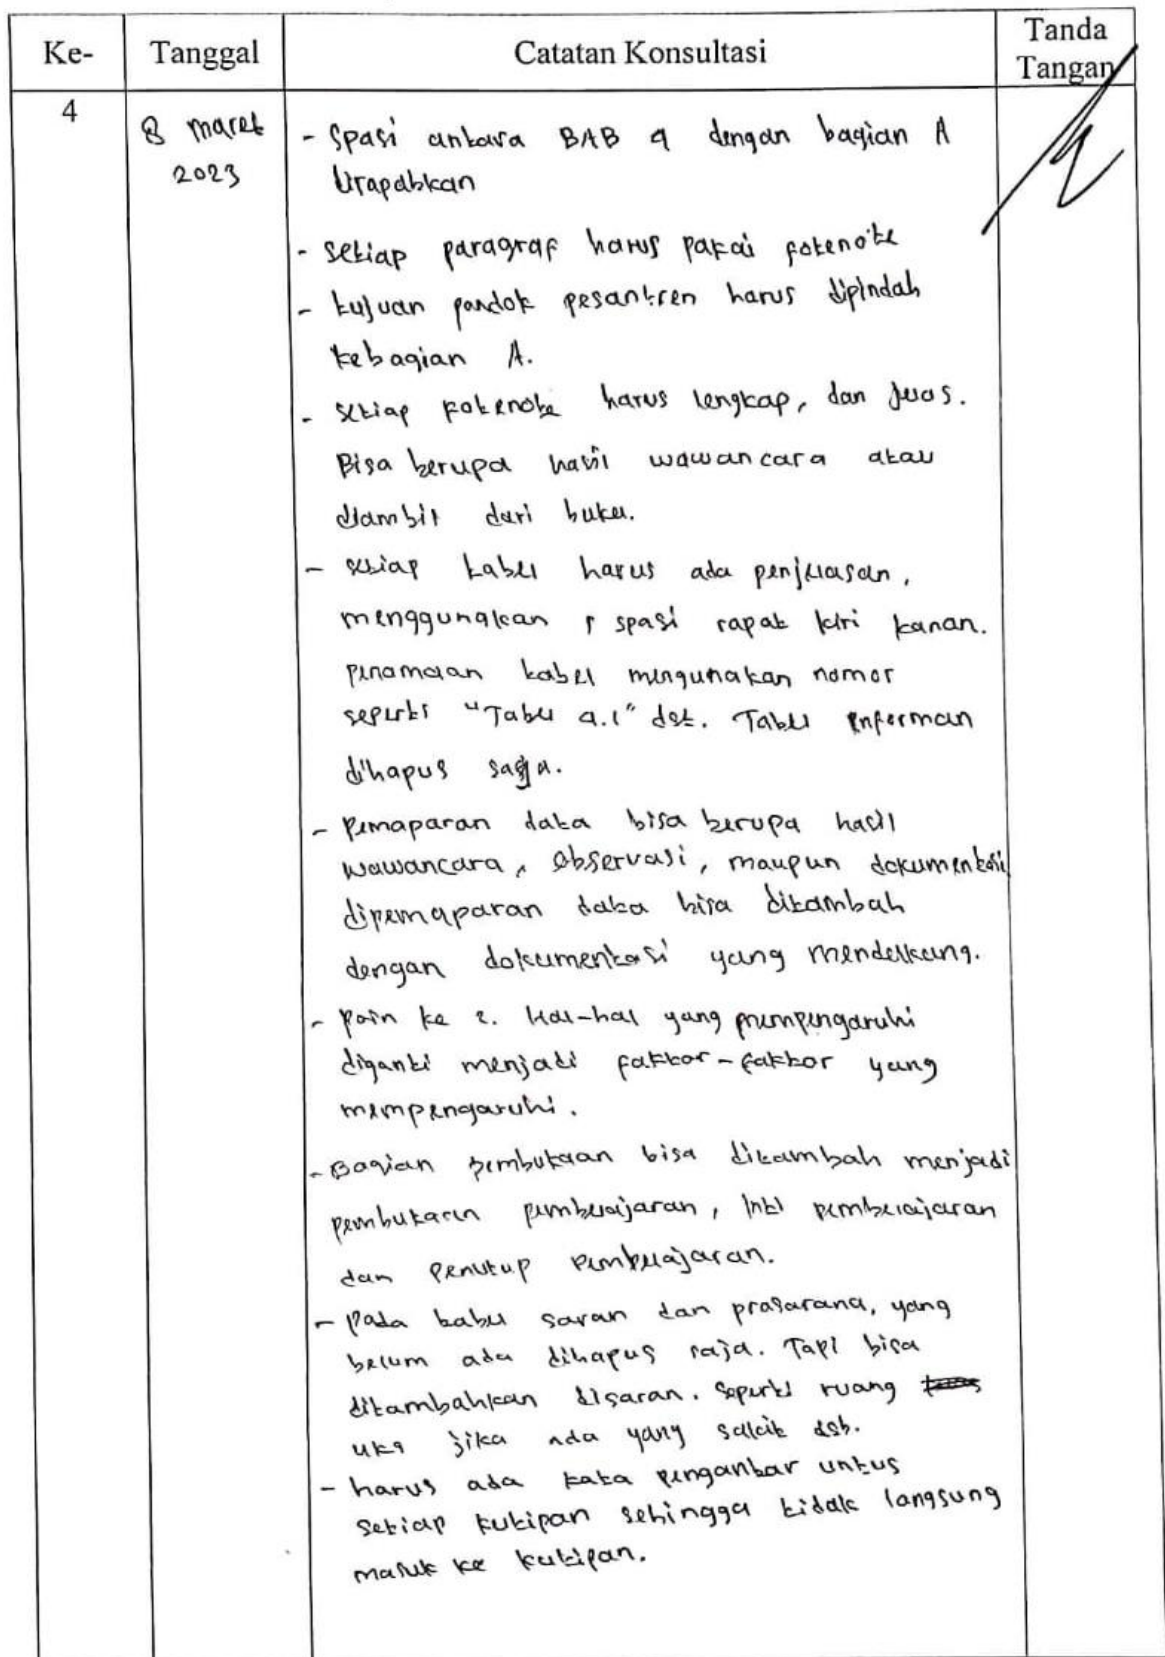 Ke-
Tanggal
Catatan Konsultasi
Tanda
Tangan
4
8 maret
2023
- Spasi antara BAB 4 dengan bagian A
dirapatkan
- setiap paragraf harus pakai fotenote
- tujuan pondok pesantren harus dipindah
kebagian A.
- setiap fotenote harus lengkap, dan jelas.
Bisa berupa hasil wawancara atau
diambil dari buku.
- setiap tabel harus ada penjelasan,
menggunakan 1 spasi rapat kiri kanan.
penamaan tabel mengunakan nomor
seperti "Tabel 4.1" dst. Tabel informan
dihapus saja.
- Pemaparan data bisa berupa hasil
wawancara, observasi, maupun dokumentasi
dipemaparan data bisa ditambah
dengan dokumentasi yang mendukung.
- Poin ke 2. Hal-hal yang mempengaruhi
diganti menjadi faktor-faktor yang
mempengaruhi.
- Bagian pembukaan bisa ditambah menjadi
pembukaan pembelajaran, Inti pembelajaran
dan Penutup Pembelajaran.
- Pada tabel saran dan prasarana, yang
belum ada dihapus saja. Tapi bisa
ditambahkan disaran. Seperti ruang
uks jika ada yang sakit dsb.
- harus ada kata pengantar untus
setiap kutipan sehingga tidak langsung
masuk ke kutipan.